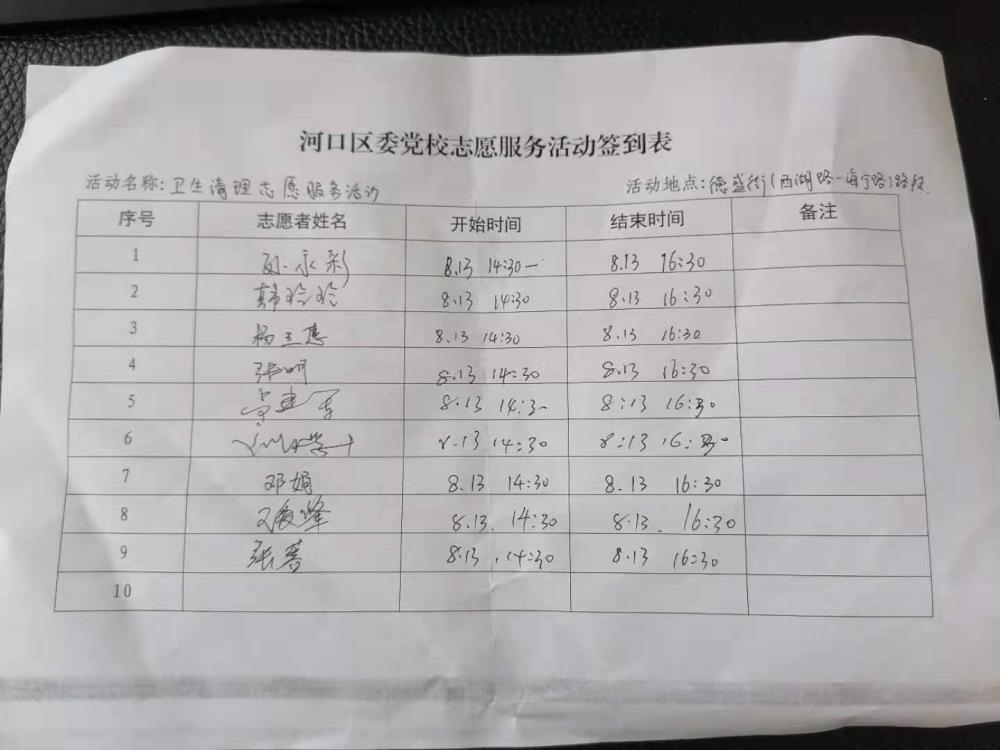 河口区委党校志愿服务活动签到表
活动名称：卫生清理志愿服务活动 活动地点：德盛街（西湖路-海宁路）路段
序号 志愿者姓名 开始时间 结束时间 备注
1 孙永彩 8.13 14:30 8.13 16:30
2 韩玲玲 8.13 14:30 8.13 16:30
3 杨玉惠 8.13 14:30 8.13 16:30
4 张明 8.13 14:30 8.13 16:30
5 8.13 14:30 8:13 16:30
6 8.13 14:30 8:13 16:30
7 邓娟 8.13 14:30 8.13 16:30
8 8.13. 14:30 8.13. 16:30
9 张菁 8.13 . 14:30 8.13 16:30
10